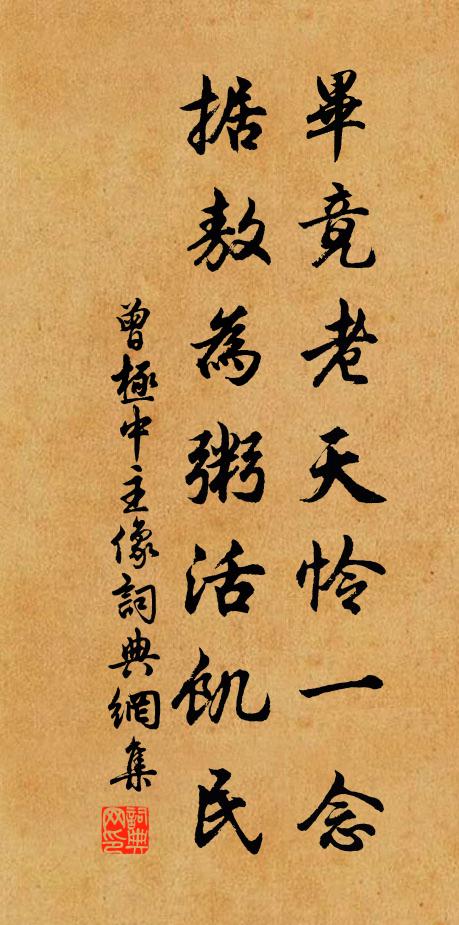 畢竟老天怜一念
据敖為粥活飢民
曾極中主像詞典網集
詞典网印